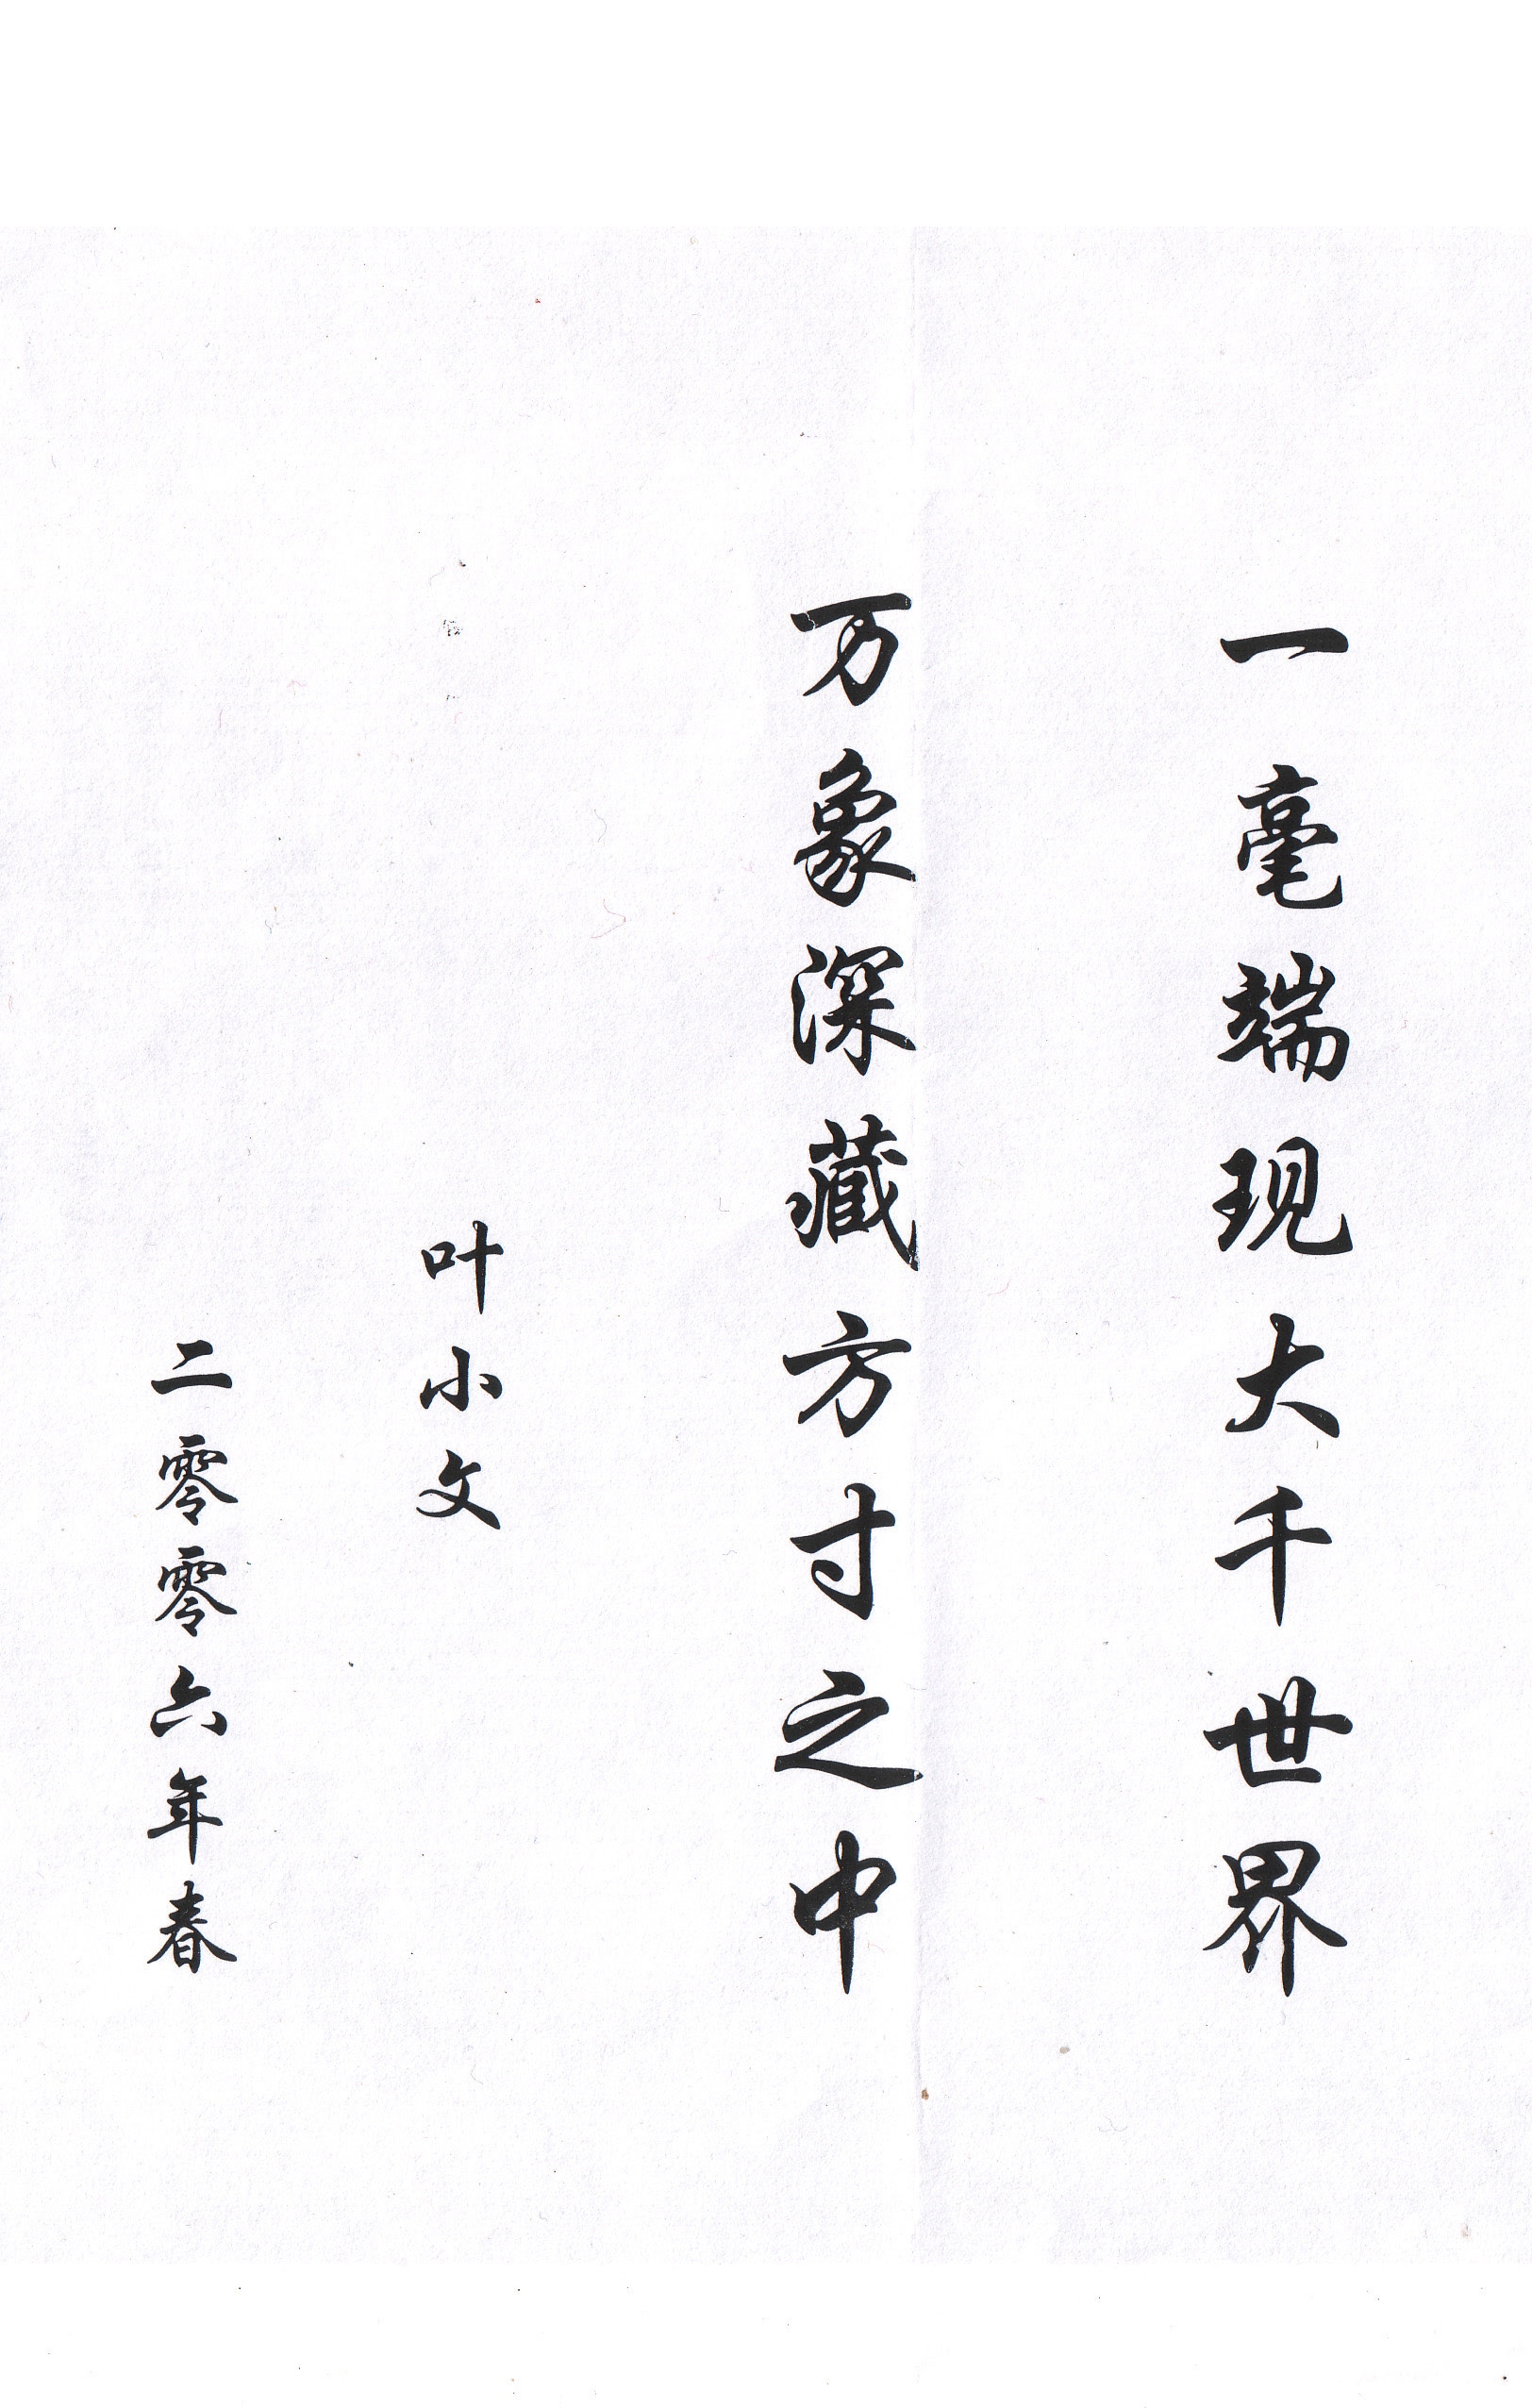 一毫端现大千世界
万象深藏方寸之中
叶小文
二零零六年春